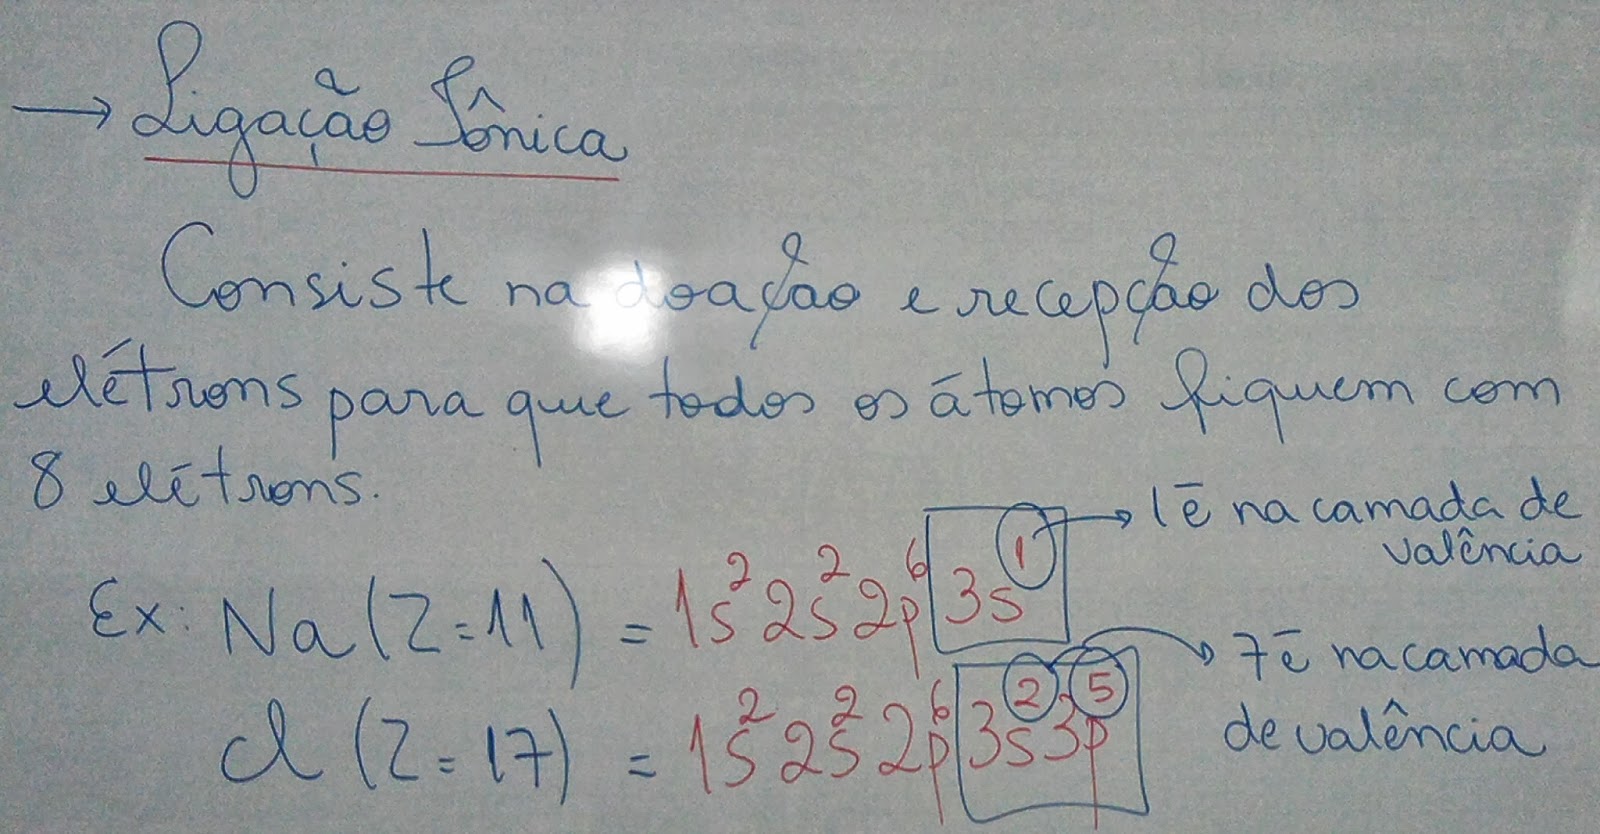 → Ligação Iônica
Consiste na doação e recepção dos
elétrons para que todos os átomos fiquem com
8 elétrons.
Ex: Na (Z=11) = 1s² 2s² 2p⁶ 3s¹ → 1ē na camada de valência
Cl (Z=17) = 1s² 2s² 2p⁶ 3s² 3p⁵ → 7ē na camada de valência